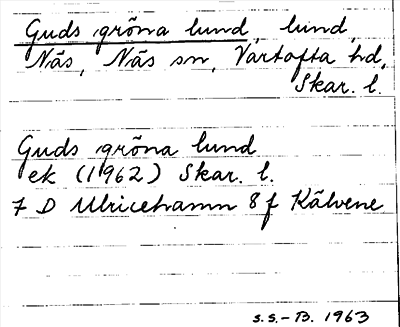 Guds gröna lund, lund,
Näs, Näs sn, Vartofta hd,
Skar. l.
Guds gröna lund
ek (1962) Skar. l.
7 D Ulricehamn 8 f Kälvene
S.S.-B. 1963